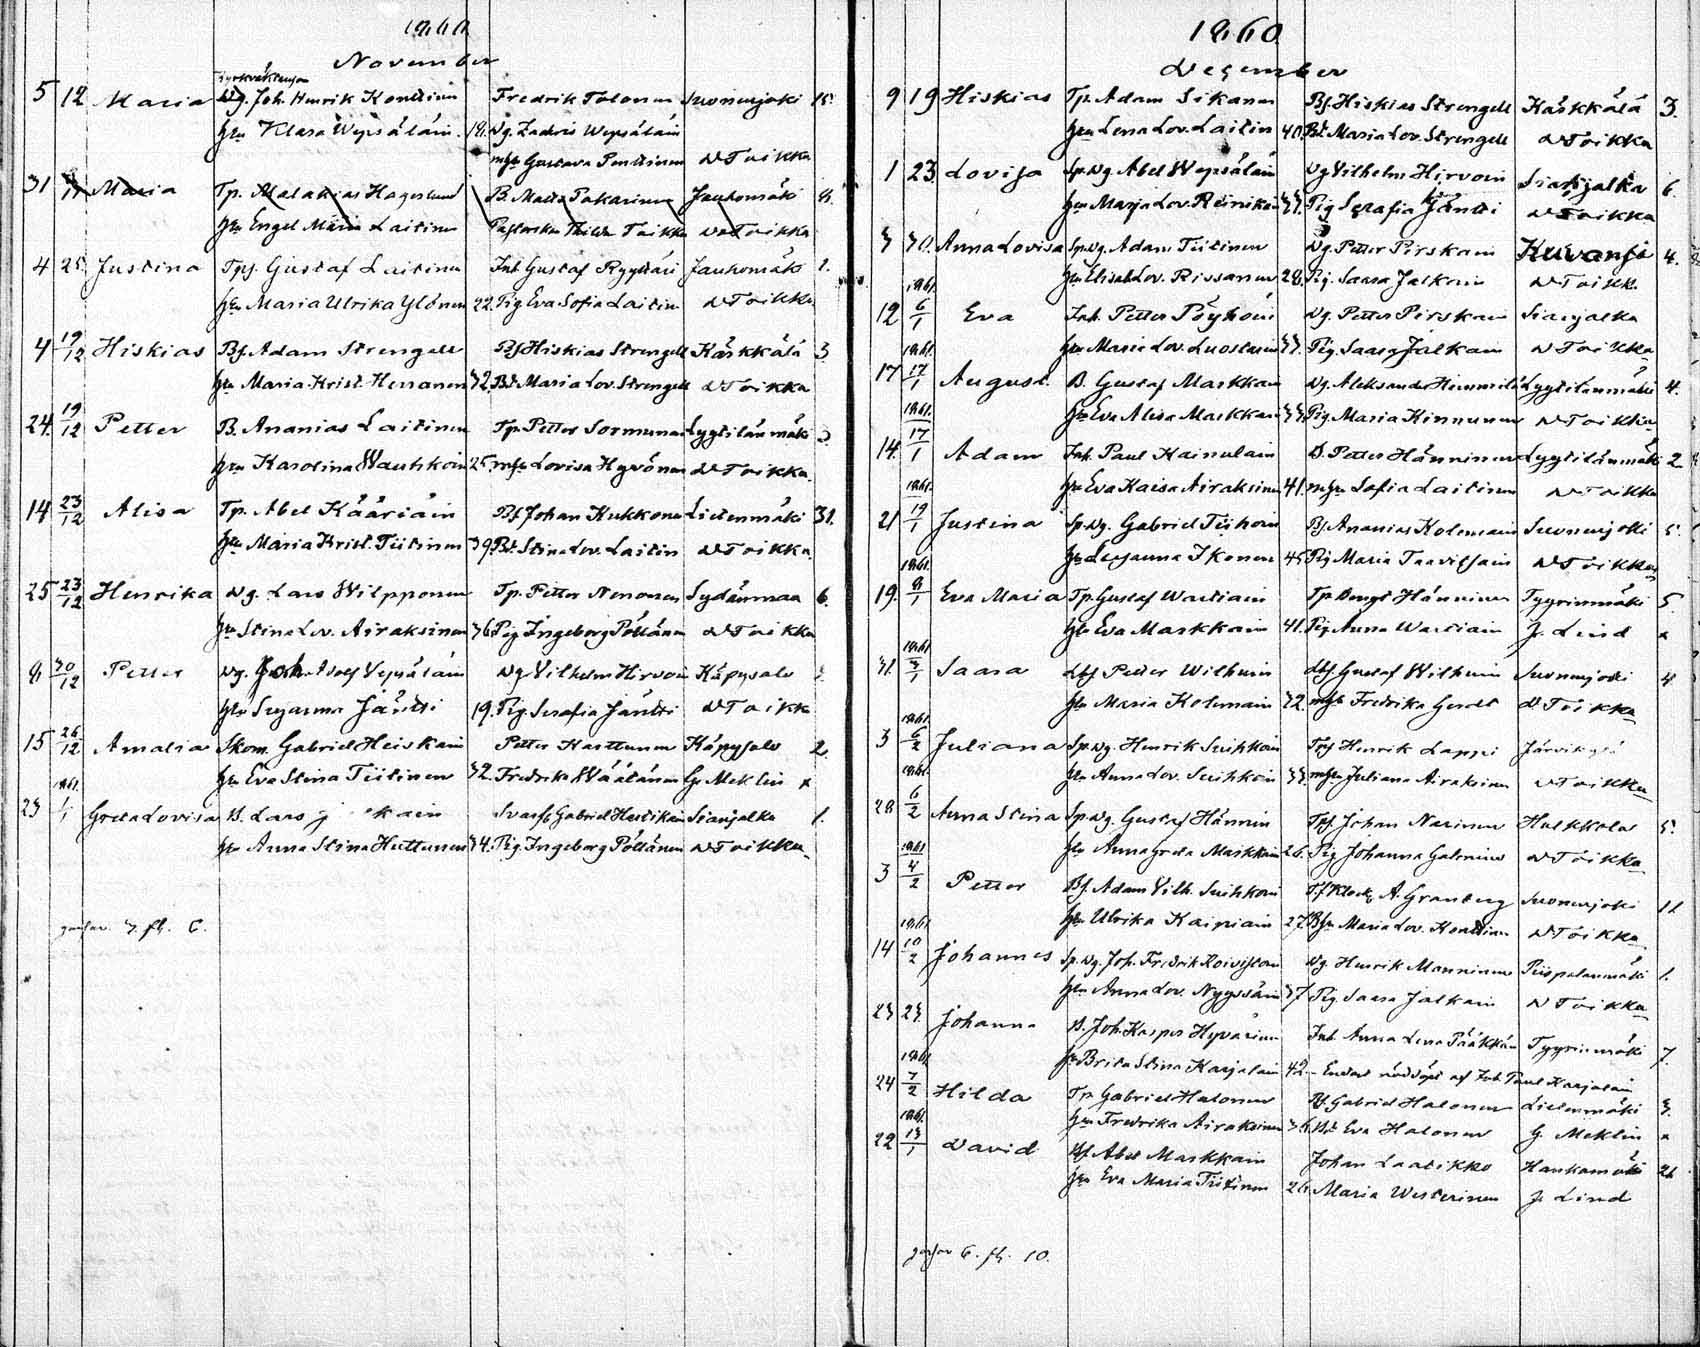 1860
November
5 12 Maria Dg. Joh. Henrik Konttinen Fredrik Tolonen Suonenjoki 15.
hu Klara Wepsäläin. 19. Dg. Zachris Wepsäläin
mhu Gustava Penttinen D Toikka
31 Maria Tp. Malakias Hagelund B. Matts Pakarinen Jauhomäki 8.
hu Engel Maria Laitinen Thilda Toikka D Toikka
4 25. Justina Tpf. Gustaf Laitinen Inh Gustaf Ryyttäri Jauhomäki 1.
hu Maria Ulrika Ylönen 22. Pig Eva Sofia Laitin D Toikka
4 19/12 Hiskias Bf. Adam Strengell Bf Hiskias Strengell Kärkkälä 3
hu Maria Krist. Henanen 32. Bd. Maria Lov. Strengell D Toikka
24. 19/12 Petter B. Ananias Laitinen Tp. Petter Sormunen Lyytilänmäki 3.
hu Karolina Wauhkoin 25. mhu Lovisa Hyvönen D Toikka
14 23/12 Alisa Tp. Abel Kääriäin Bf Johan Kukkonen Lietenmäki 31.
hu Maria Krist. Tiitinen 39. Bd. Stina Lov. Laitin D Toikka
25 23/12 Henrika Dg. Lars Wilpponen Tp. Petter Nenonen Sydänmaa 6.
hu Stina Lov. Airaksinen 36. Pig Ingeborg Pöllänen D Toikka
8 30/12 Petter Dg. Joh. Adolf Vepsäläin Dg Vilhelm Hirvoin Käpysalo
hu Susanna Jäntti 19. Pig Serafia Jäntti D Toikka
15 26/12 Amalia Skom. Gabriel Heiskain Petter Karttunen Käpysalo 2.
hu Eva Stina Tiitinen 32. Fredrika Väätänen G. Meklin x
1861.
23 1/1 Greta Lovisa B. Lars Gabriel Herttikäin Sianjalka 1.
hu Anna Stina Huttunen 34. Pig. Ingeborg Pöllänen D Toikka
gossar. 7. fl. 6.
1860.
December
9 19 Hiskias Tp. Adam Sikanen Bf. Hiskias Strengell Kärkkälä 3.
hu Lena Lov. Laitin 40. Bd. Maria Lov. Strengell D Toikka
1 23. Lovisa Sp. Dg. Abel Wepsäläin Dg Vilhelm Hirvoin Sianjalka 6.
hu Maria Lov. Reinikäin 37. Pig Serafia Jäntti D Toikka
3 30. Anna Lovisa Sp. Dg. Adam Tiitinen Dg. Petter Pirskain Kuvansi 4.
1861. hu Elisab. Lov. Rissanen 28. Pig. Saara Jalkain D Toikk.
12 6/1 Eva Inh. Petter Pöyhöin Dg. Petter Pirskain Sianjalka
1861. hu Maria Lov. Luostarin 33. Pig. Saara Jalkain D Toikka
17 17/1 August. B. Gustaf Markkain Dg. Aleksander Himmelä Lyytilänmäki 4.
1861. hu Eva Alisa Markkain 33. Pig. Maria Kinnunen D Toikka
14. 17/1 Adam Inh. Paul Kainulain B. Petter Hänninen Lyytilänmäki 2
1861. hu Eva Kaisa Airaksinen 41. mhu Sofia Laitinen D Toikka
21 19/1 Justina Sp. Dg. Gabriel Tiihoin Bf. Ananias Kolemain Suonenjoki 5.
1861. hu Susanna Ikonen 45. Pig Maria Taavitsain D Toikka
19. 8/1 Eva Maria Tp. Gustaf Wartiain Tp. Bengt Hänninen Tyyrinmäki 5.
1861 hu Eva Markkain 41. Pig. Anna Wartiain J. Lind x
31. 3/1 Saara Lbf Petter Wilhuin Lbf. Gustaf Wilhuin Suonenjoki 4
1861. hu Maria Kolemain 22. mhu Fredrika Gerdt D Toikka
3 6/2 Juliana Sp. Dg. Henrik Suihkoin Tpf Henrik Lappi Järvikylä
1861. hu Anna Lov. Suihkoin 33. mhu Juliana Airaksinen D Toikka
28 6/2 Anna Stina Sp. Dg. Gustaf Hännin Tpf. Johan Narinen Hulkkola 5.
1861 hu Anna Greta Markkain 26. Pig Johanna D Toikka
3 4/2 Petter Bf. Adam Vilh. Suihkoin Klock. A. Granberg Suonenjoki 11
1861 hu Ulrika Kaipiain 27. Bhu Maria Lov. Konttinen D Toikka
14 10/2 Johannes Sp. Dg. Joh. Fredrik Koivistoin Dg. Henrik Manninen Piispalanmäki 1.
hu Anna Lov. Nyyssöin 37 Pig. Saara Jalkain D Toikka
23 23. Johanna B. Joh. Kasper Hyvärinen Inh Anna Lena Pääkkön Tyyrinmäki 7.
1861 hu Brita Stina Karjalain 42. – Endast nöddöpt af Inh. Paul Karjalain
24 7/2 Hilda Tp Gabriel Halonen Bf. Gabriel Halonen Lietenmäki 3.
1861. hu Fredrika Airaksinen 36. Bd. Eva Halonen G. Meklin x
22 13/1 David Bf. Abel Markkain Johan Laatikko Hankamäki 26
hu Eva Maria Tiitinen 26. Maria Westerinen J. Lind
gossar 6. fl. 10.